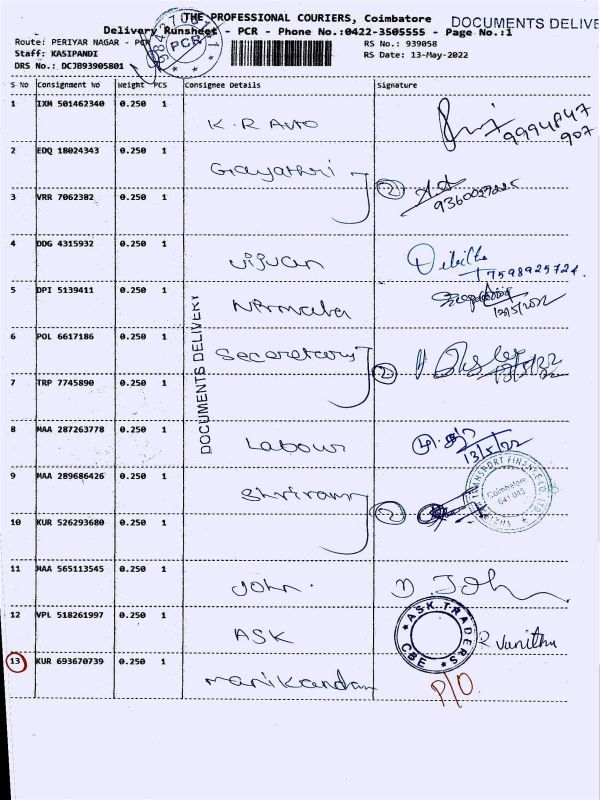 THE PROFESSIONAL COURIERS, Coimbatore
DOCUMENTS DELIVE
Delivery Runsheet - PCR - Phone No.:0422-3505555 - Page No.:1
Route: PERIYAR NAGAR - PCR
RS No.: 939058
Staff: KASIPANDI
RS Date: 13-May-2022
DRS No.: DCJB93905801
PCR
S No Consignment No Weight PCS Consignee Details Signature
1 IXM 501462340 0.250 1 K.R Auto
9994847
907
2 EDQ 18024343 0.250 1 Gayathri
2
3 VRR 7062382 0.250 1
4 DDG 4315932 0.250 1
7598925724.
5 DPI 5139411 0.250 1 NRmala
13/5/2022
6 POL 6617186 0.250 1 Secoretory
2
7 TRP 7745890 0.250 1
DOCUMENTS DELIVERY
8 MAA 287263778 0.250 1 Labour
13/5/22
9 MAA 289686426 0.250 1 Shriram
2
TRANSPORT FINANCE CO. LTD
Coimbatore
10 KUR 526293680 0.250 1
11 MAA 565113545 0.250 1 John. D. John
12 VPL 518261997 0.250 1 ASK
ASK TRADERS
CBE
R Vanitha
13 KUR 693670739 0.250 1 Manikandan P/O